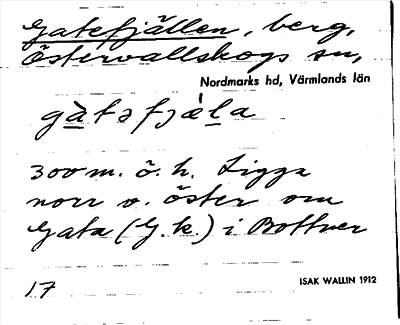 Gatefjällen, berg,
Östervallskogs sn,
Nordmarks hd, Värmlands län
gàtəfjæ̀la
300 m. ö. h. Ligga
norr o. öster om
Gata (G. k.) i Bottner
17
ISAK WALLIN 1912